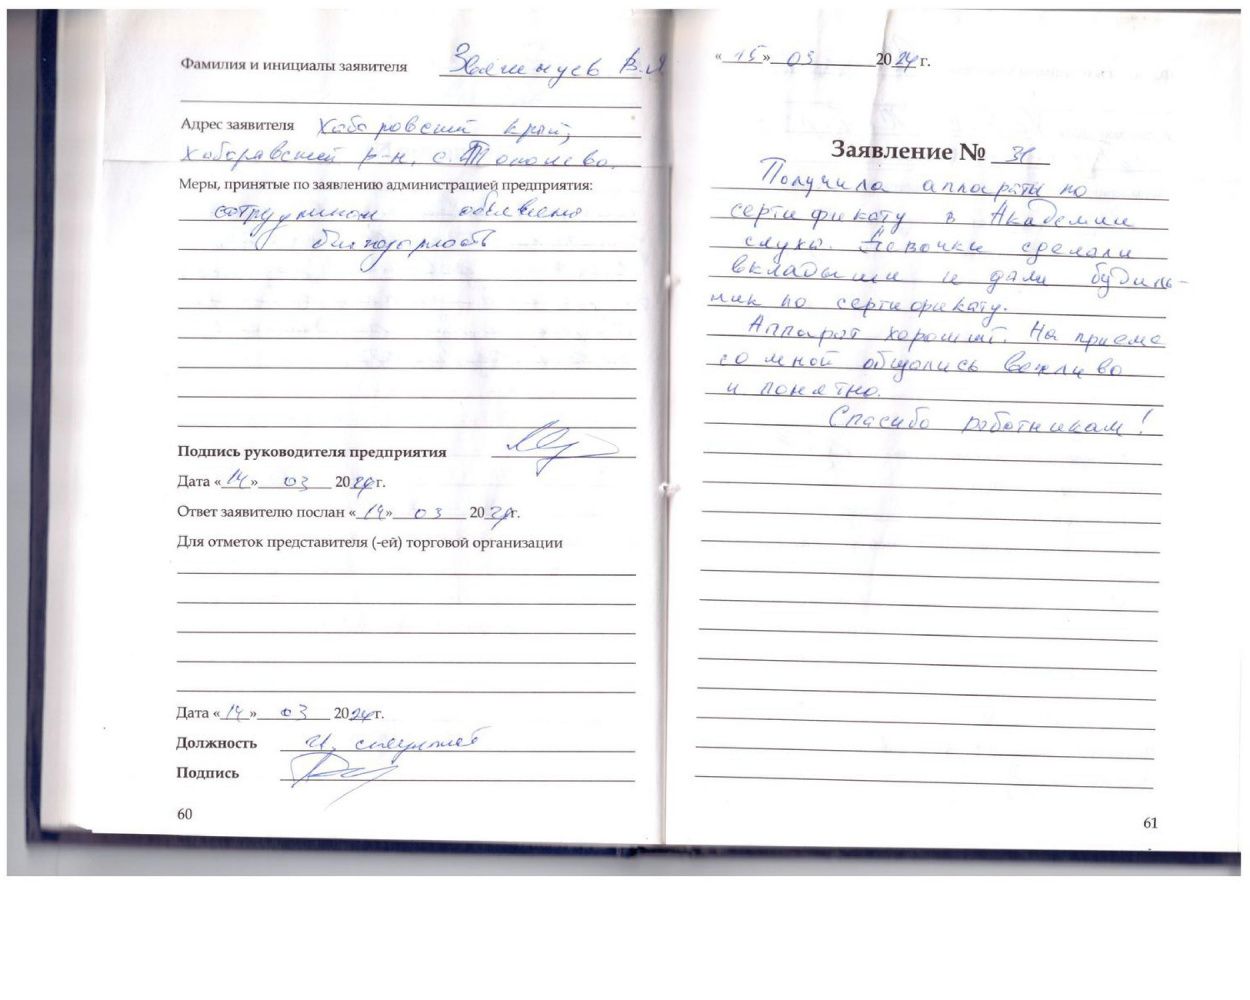 Фамилия и инициалы заявителя В.Я
Адрес заявителя Хабаровский край,
Хабаровский р-н, с. Тополево.
Меры, принятые по заявлению администрацией предприятия:
сотрудникам объявлена
благодарность
Подпись руководителя предприятия
Дата «14» 03 2024г.
Ответ заявителю послан «14» 03 2024г.
Для отметок представителя (-ей) торговой организации
Дата «14» 03 2024г.
Должность
Подпись
60
«15» 03 2024г.
Заявление №
Получила аппараты по
сертификату в Академии
слуха. Девочки сделали
вкладыши и дали будиль-
ник по сертификату.
Аппарат хороший. На приеме
со мной общались вежливо
и понятно.
Спасибо работникам!
61